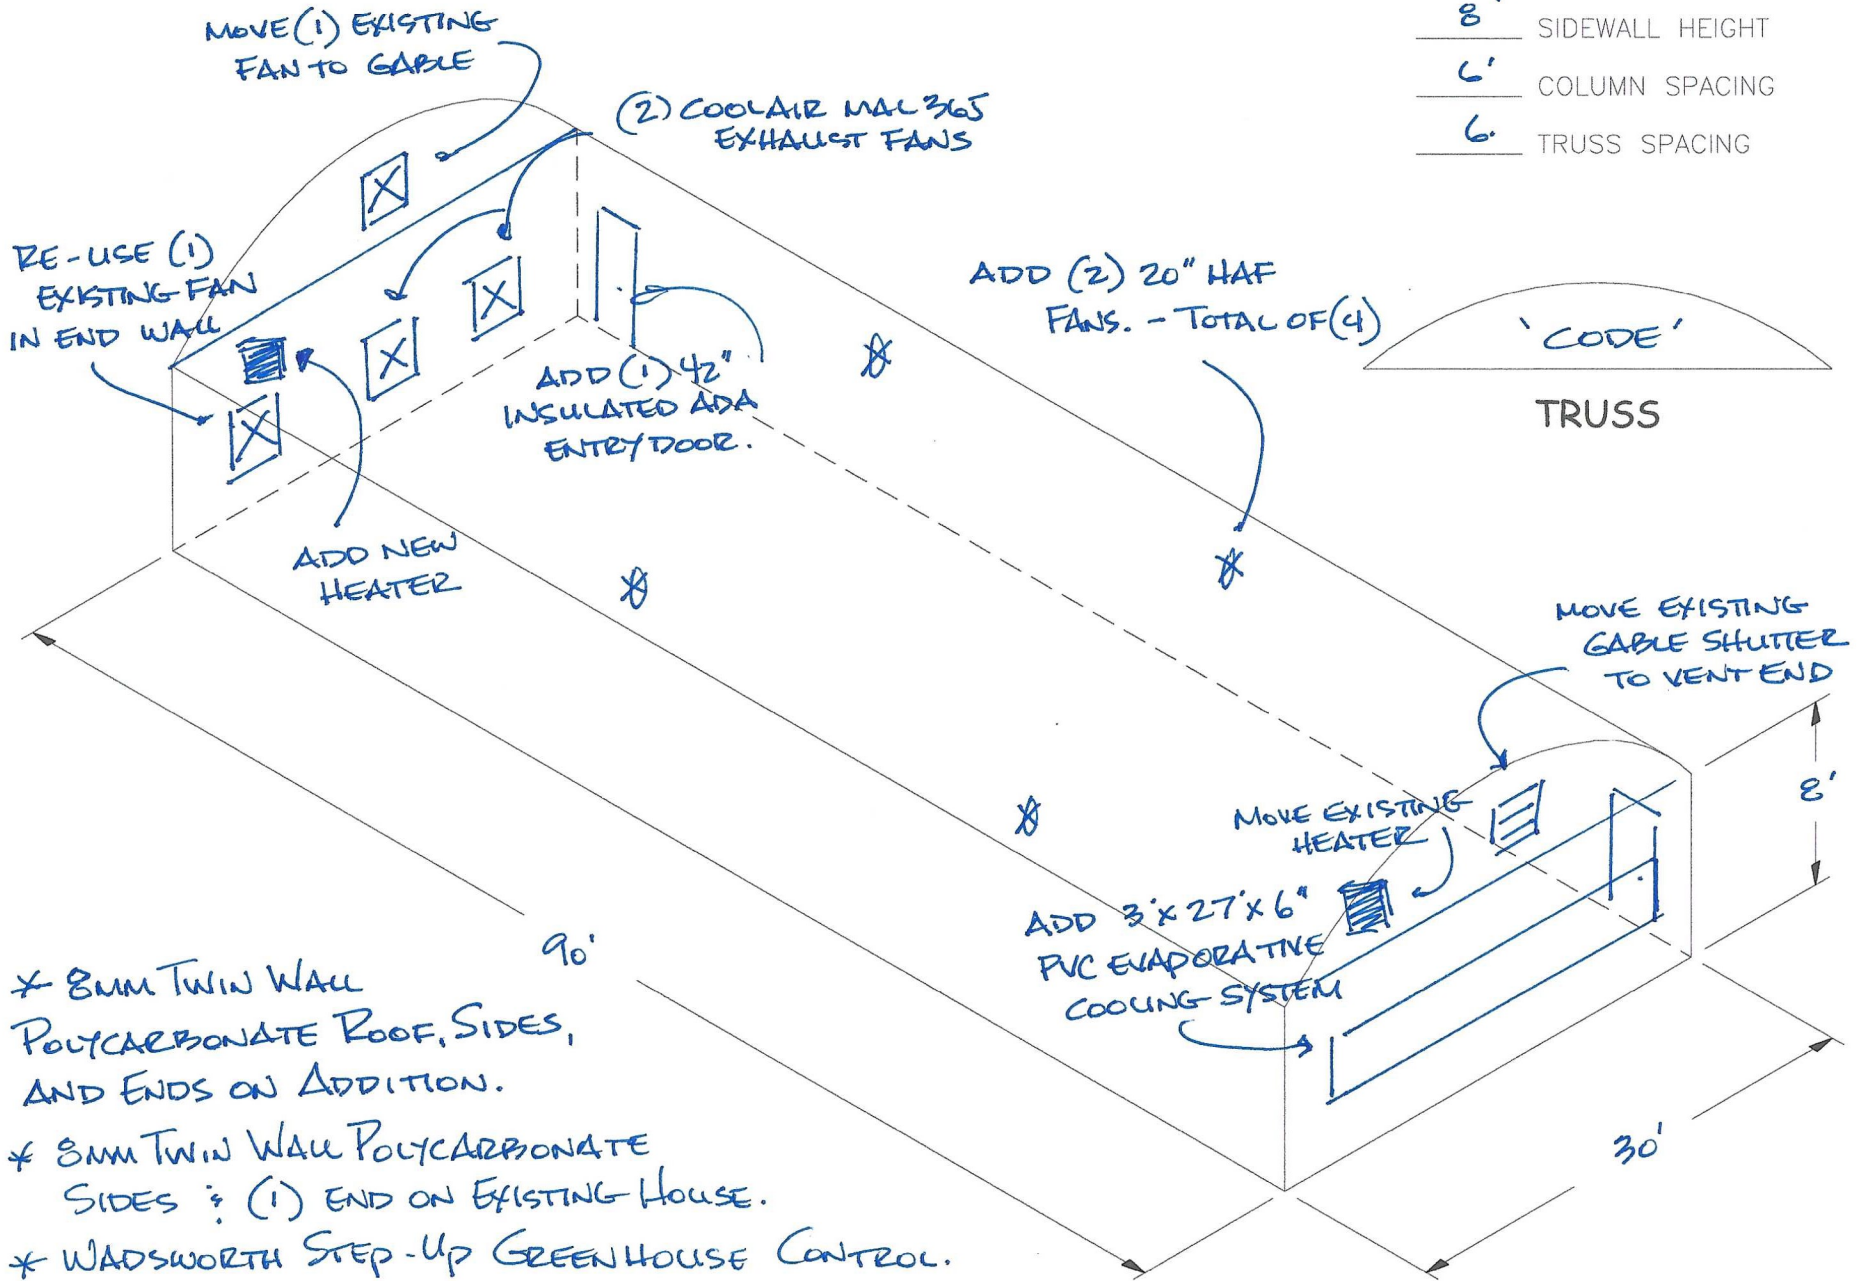 MOVE (1) EXISTING
FAN TO GABLE
(2) COOLAIR MAL 365
EXHAUST FANS
8' SIDEWALL HEIGHT
6' COLUMN SPACING
6. TRUSS SPACING
RE-USE (1)
EXISTING FAN
IN END WALL
ADD (2) 20" HAF
FANS. - TOTAL OF (4)
'CODE'
TRUSS
ADD (1) 42"
INSULATED ADA
ENTRY DOOR.
ADD NEW
HEATER
MOVE EXISTING
GABLE SHUTTER
TO VENT END
8'
MOVE EXISTING
HEATER
ADD 3'x27'x6"
PVC EVAPORATIVE
COOLING SYSTEM
90'
30'
* 8MM TWIN WALL
POLYCARBONATE ROOF, SIDES,
AND ENDS ON ADDITION.
* 8MM TWIN WALL POLYCARBONATE
SIDES & (1) END ON EXISTING HOUSE.
* WADSWORTH STEP-UP GREENHOUSE CONTROL.